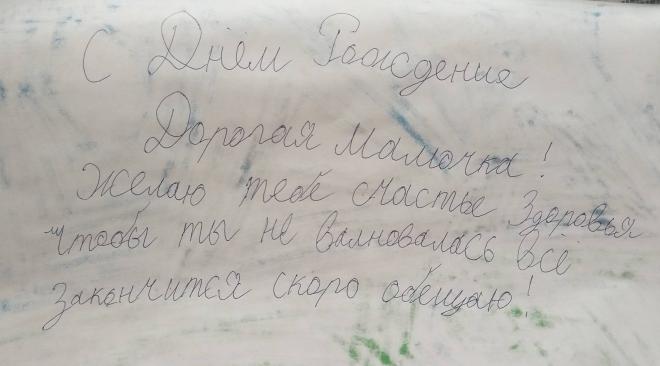 С Днём Рождение
Дорогая Мамочка!
Желаю тебе счастье Здоровья
чтобы ты не валновалась всё
закончится скоро обещаю!